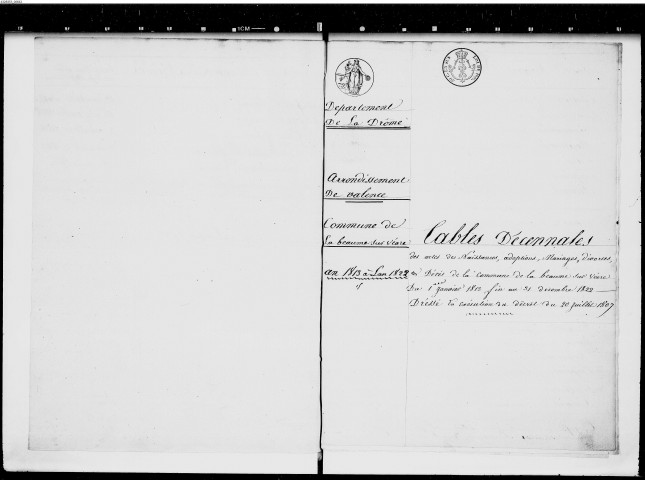 Departement
De La Drome
Arrondissement
De valence
Commune de
La beaume sur véore
an 1813 à Lan 1822
1CM
Tables Décennales
des actes de Naissances, adoptions, Mariages, divorces,
et Décès de la Commune de la beaume sur véore
Du 1er janvier 1813 fin au 31 decembre 1822
Dressé En execution du décret du 20 juillet 1807